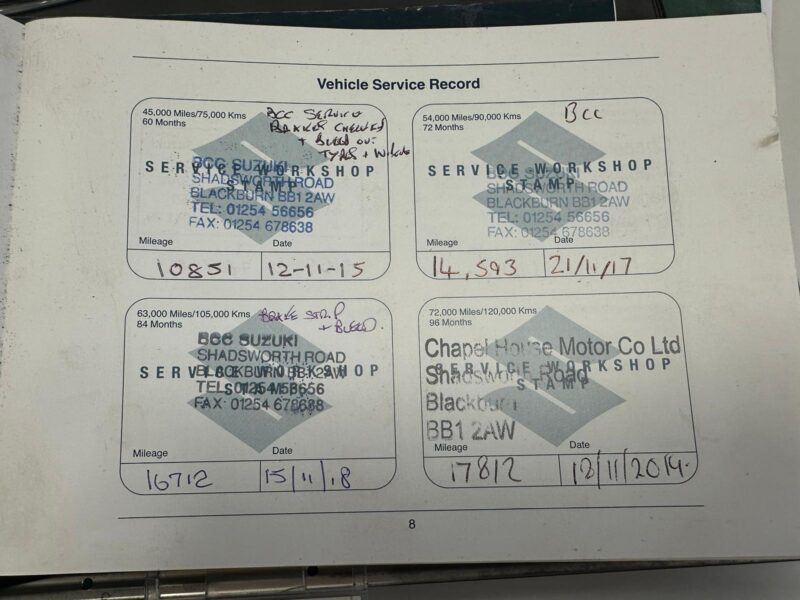 Vehicle Service Record
45,000 Miles/75,000 Kms
60 Months
BCC SERVICE
BRAKES CHECKED
+ BLEED OUT
TYRES +
SERVICE WORKSHOP
STAMP
BCC SUZUKI
SHADSWORTH ROAD
BLACKBURN BB1 2AW
TEL: 01254 56656
FAX: 01254 678638
Mileage
Date
10851
12-11-15
54,000 Miles/90,000 Kms
72 Months
BCC
SERVICE WORKSHOP
STAMP
BCC SUZUKI
SHADSWORTH ROAD
BLACKBURN BB1 2AW
TEL: 01254 56656
FAX: 01254 678638
Mileage
Date
14,593
21/11/17
63,000 Miles/105,000 Kms
84 Months
BRAKE STRIP
+ BLEED.
BCC SUZUKI
SHADSWORTH ROAD
SERVICE WORKSHOP
BLACKBURN BB1 2AW
STAMP
TEL: 01254 56656
FAX: 01254 678638
Mileage
Date
16712
15/11/18
72,000 Miles/120,000 Kms
96 Months
Chapel House Motor Co Ltd
SERVICE WORKSHOP
STAMP
Shadsworth Road
Blackburn
BB1 2AW
Mileage
Date
17812
12/11/2019.
8